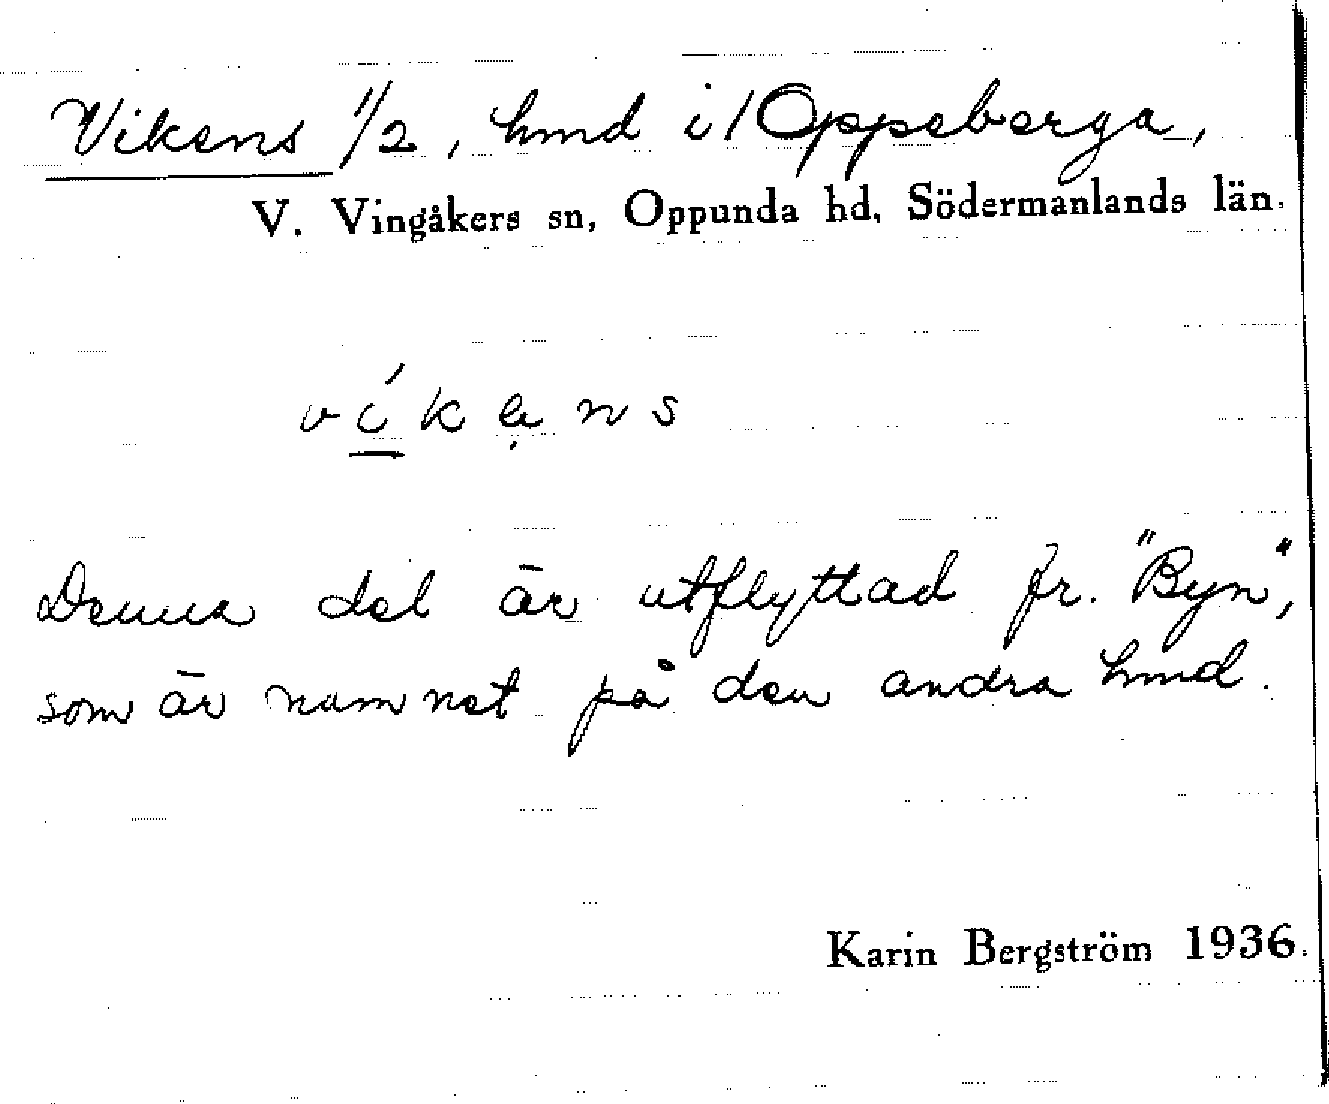 Vikens 1/2, hmd i 1 Oppeberga,
V. Vingåkers sn, Oppunda hd, Södermanlands län.
víkens
Denna del är utflyttad fr. "Byn",
som är namnet på den andra hmd.
Karin Bergström 1936.